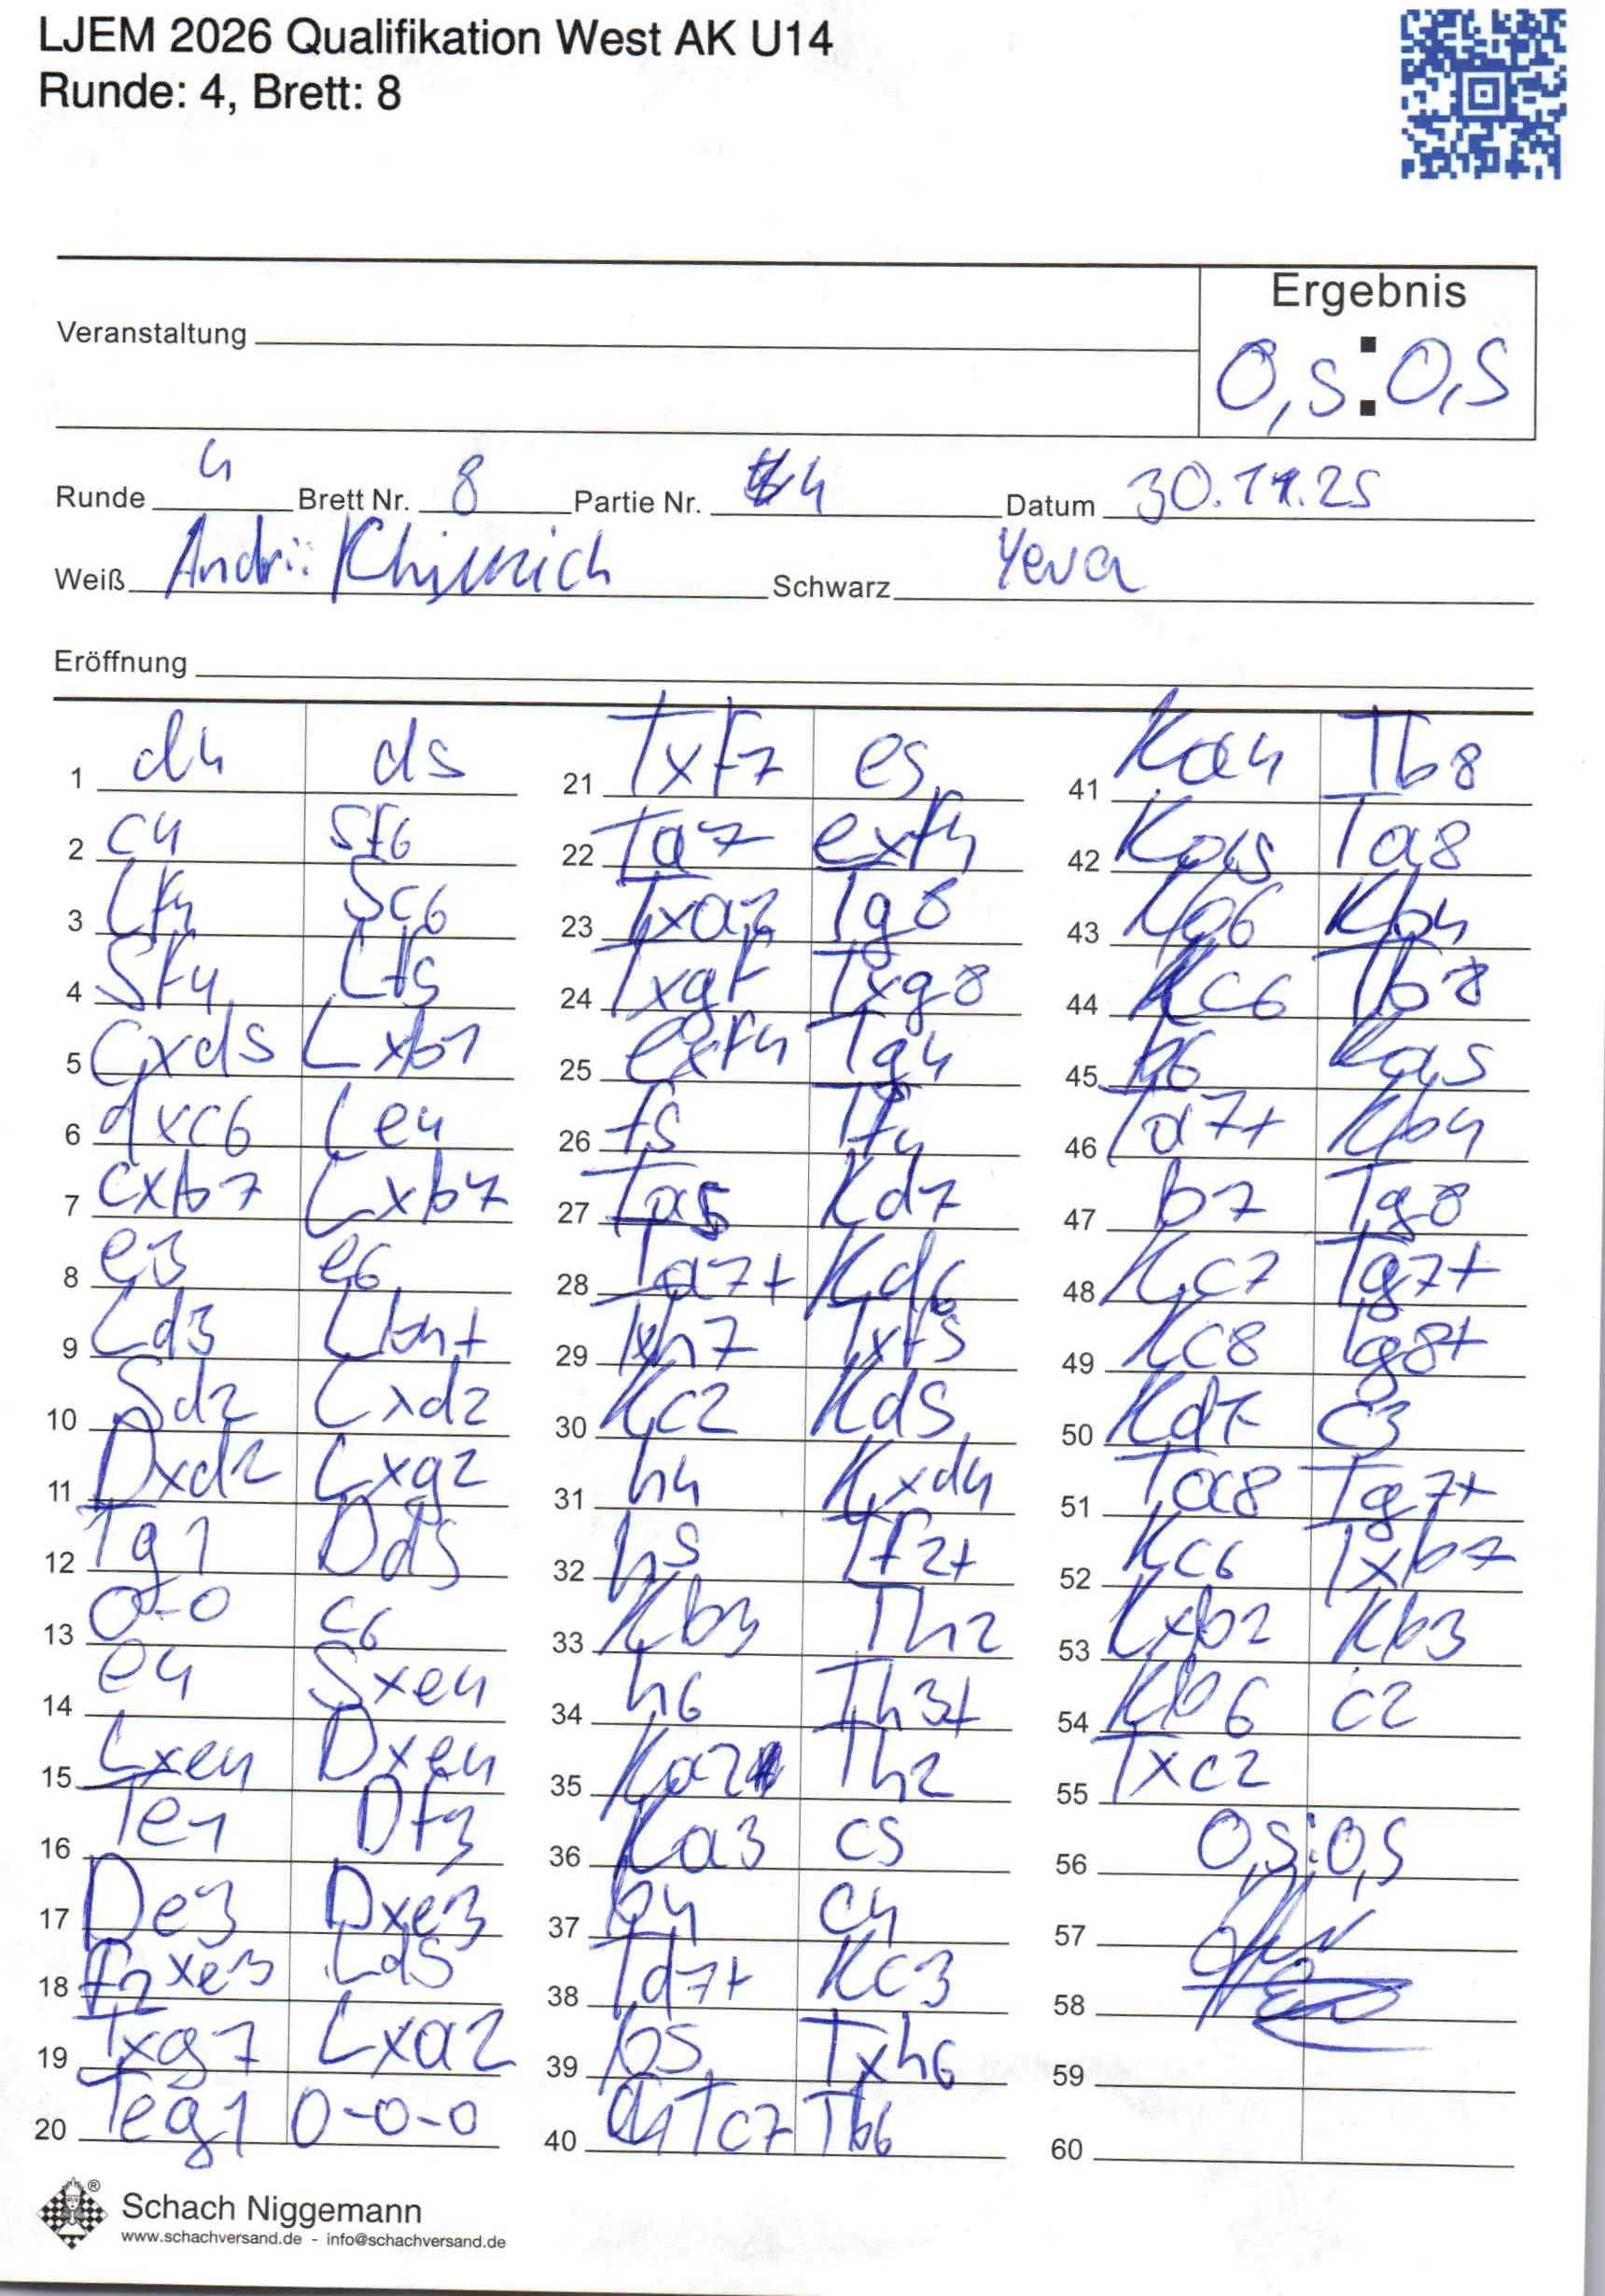 LJEM 2026 Qualifikation West AK U14
Runde: 4, Brett: 8
Ergebnis
Veranstaltung
0,5:0,5
Runde 4 Brett Nr. 8 Partie Nr. 4 Datum 30.11.25
Weiß Andrii Schwarz Yeva
Eröffnung
1 d4 d5
2 c4 Sf6
3 Lf4 Sc6
4 Sf4 Lf5
5 Cxd5 Lxb1
6 dxc6 Le4
7 cxb7 Lxb7
8 e3 e6
9 Ld3 Lb4+
10 Sd2 Lxd2
11 Dxd2 Lxg2
12 Tg1 Dd5
13 0-0 c6
14 e4 Sxe4
15 Lxe4 Dxe4
16 Te1 Df3
17 De3 Dxe3
18 f2xe3 Ld5
19 Txg7 Lxa2
20 Teg1 0-0-0
21 Txf7 e5
22 Ta7 exf4
23 Txa2 Tg8
24 Txg8 Txg8
25 exf4 Tg4
26 f5 Tf4
27 Ta5 Kd7
28 Ta7+ Kd6
29 Txh7 Txf5
30 Kc2 Kd5
31 h4 Kxd4
32 h5 Tf2+
33 Kb3 Th2
34 h6 Th3+
35 Ka2 Th2
36 Ka3 c5
37 b4 c4
38 Td7+ Kc3
39 b5 Txh6
40 Tc7 Tb6
41 Ka4 Tb8
42 Ka5 Ta8
43 Kb6 Kb4
44 Kc6 Tb8
45 b6 Ka5
46 Ta7+ Kb4
47 b7 Tg8
48 Kc7 Tg7+
49 Kc8 Tg8+
50 Kd7 c3
51 Ta8 Tg7+
52 Kc6 Txb7
53 Kxb7 Kb3
54 Kb6 c2
55 Txc2
56 0,5:0,5
57
58
59
60
Schach Niggemann
www.schachversand.de - info@schachversand.de